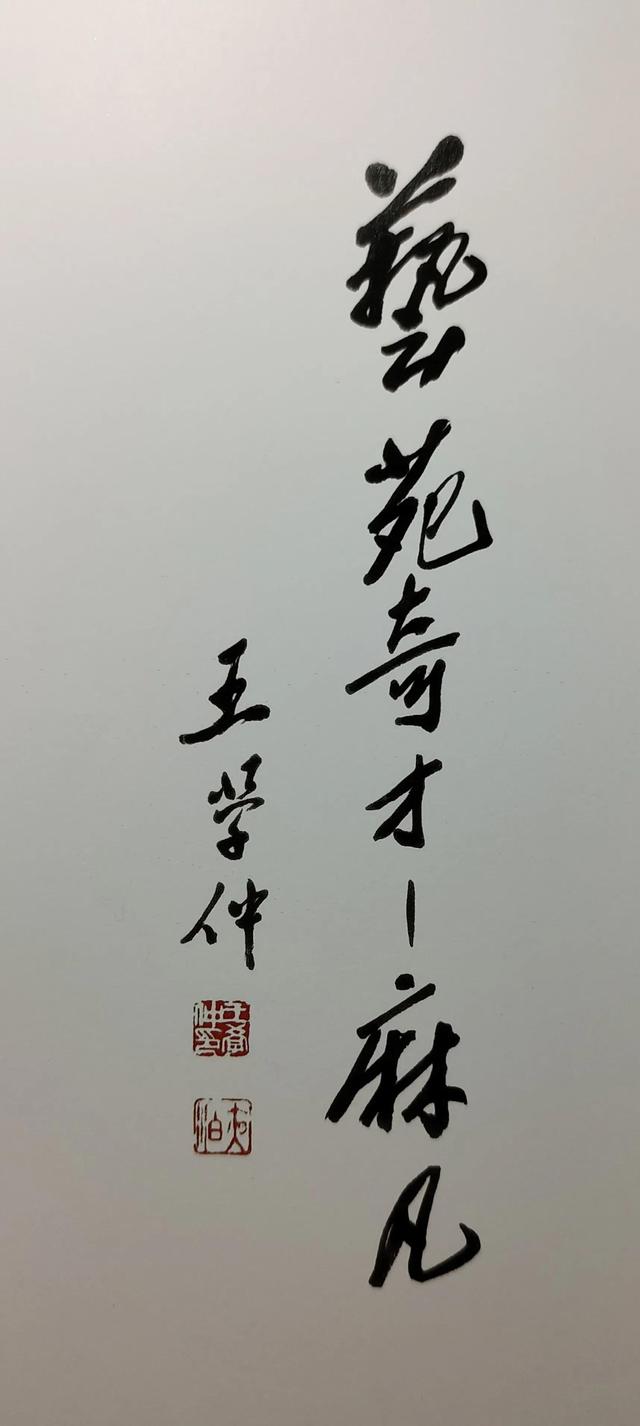 藝苑奇才—麻凡
王學仲